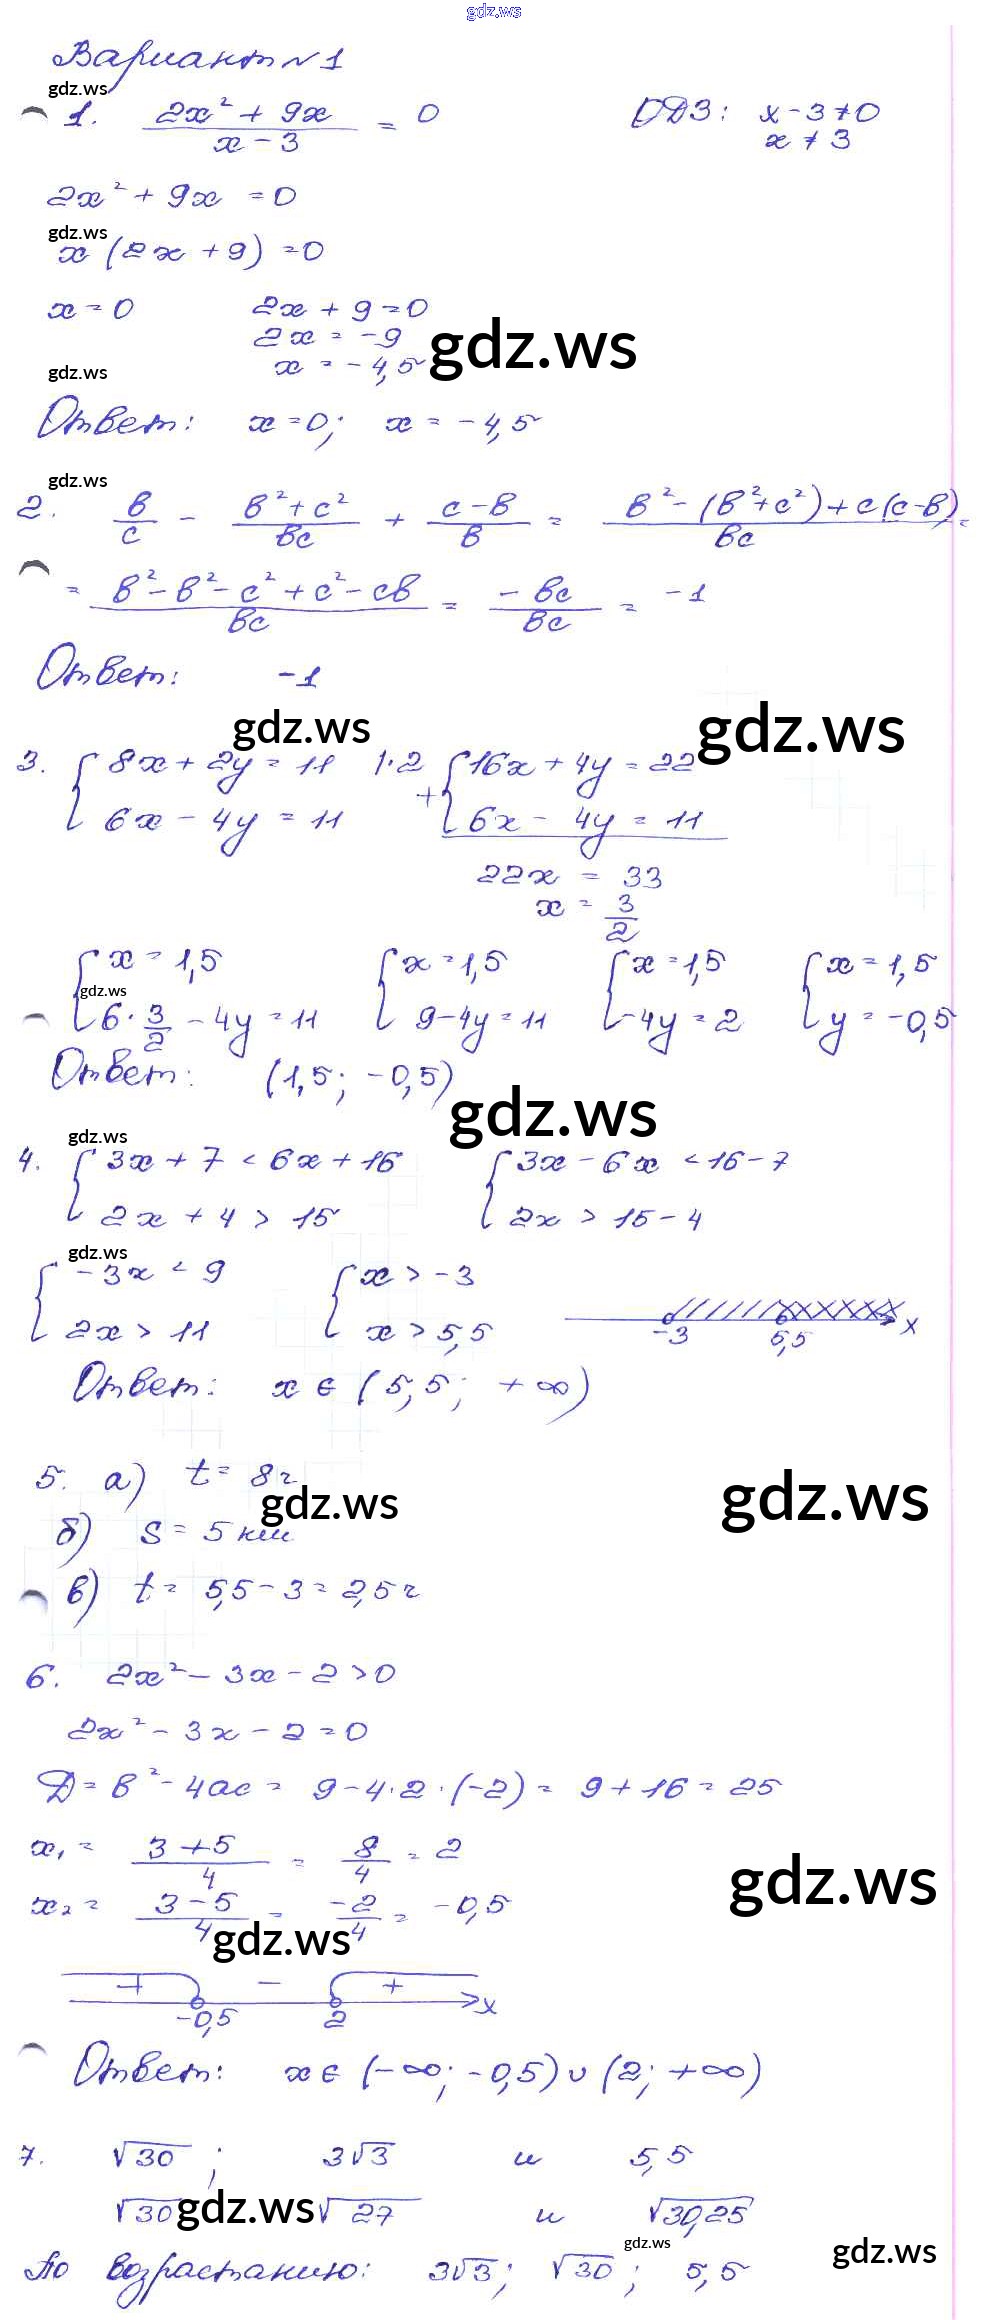 gdz.ws
Вариант №1
gdz.ws
1. (2x² + 9x)/(x - 3) = 0 ОДЗ: x - 3 ≠ 0
x ≠ 3
2x² + 9x = 0
gdz.ws
x (2x + 9) = 0
x = 0 2x + 9 = 0
2x = -9
gdz.ws
gdz.ws x = -4,5
Ответ: x = 0; x = -4,5
gdz.ws
2. в/с - (в² + с²)/вс + (с - в)/в = (в² - (в² + с²) + с(с - в))/вс =
= (в² - в² - с² + с² - св)/вс = -вс/вс = -1
Ответ: -1
gdz.ws gdz.ws
3. { 8x + 2y = 11 |·2 + { 16x + 4y = 22
6x - 4y = 11 6x - 4y = 11
22x = 33
x = 3/2
{ x = 1,5 { x = 1,5 { x = 1,5 { x = 1,5
gdz.ws
6 · 3/2 - 4y = 11 9 - 4y = 11 -4y = 2 y = -0,5
Ответ: (1,5; -0,5)
gdz.ws
gdz.ws
4. { 3x + 7 < 6x + 16 { 3x - 6x < 16 - 7
2x + 4 > 15 2x > 15 - 4
gdz.ws
{ -3x < 9 { x > -3
2x > 11 x > 5,5 -3 5,5 x
Ответ: x ∈ (5,5; +∞)
5. а) t = 8 ч
gdz.ws gdz.ws
б) S = 5 км
в) t = 5,5 - 3 = 2,5 ч
6. 2x² - 3x - 2 > 0
2x² - 3x - 2 = 0
Д = в² - 4ас = 9 - 4·2·(-2) = 9 + 16 = 25
x₁ = (3 + 5)/4 = 8/4 = 2
gdz.ws
x₂ = (3 - 5)/4 = -2/4 = -0,5
gdz.ws
+ - +
-0,5 2 x
Ответ: x ∈ (-∞; -0,5) ∪ (2; +∞)
7. √30 ; 3√3 и 5,5
√30 gdz.ws √27 и √30,25
gdz.ws gdz.ws
По возрастанию: 3√3; √30 ; 5,5